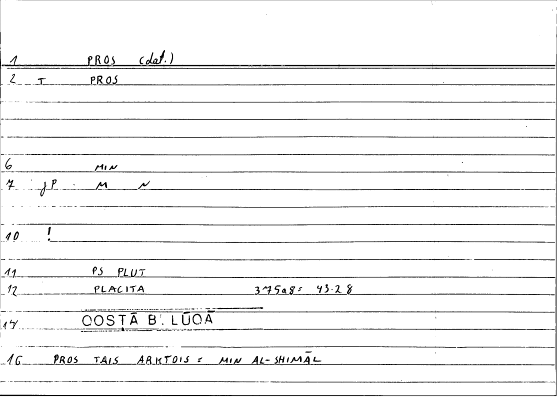 1 PROS (dat.)
2 T PROS
6 MIN
7 JP M N
10 !
11 PS PLUT
12 PLACITA 375a8= 43.28
14 QOSṬĀ B. LŪQĀ
16 PROS TAIS ARKTOIS = MIN AL-SHIMĀL